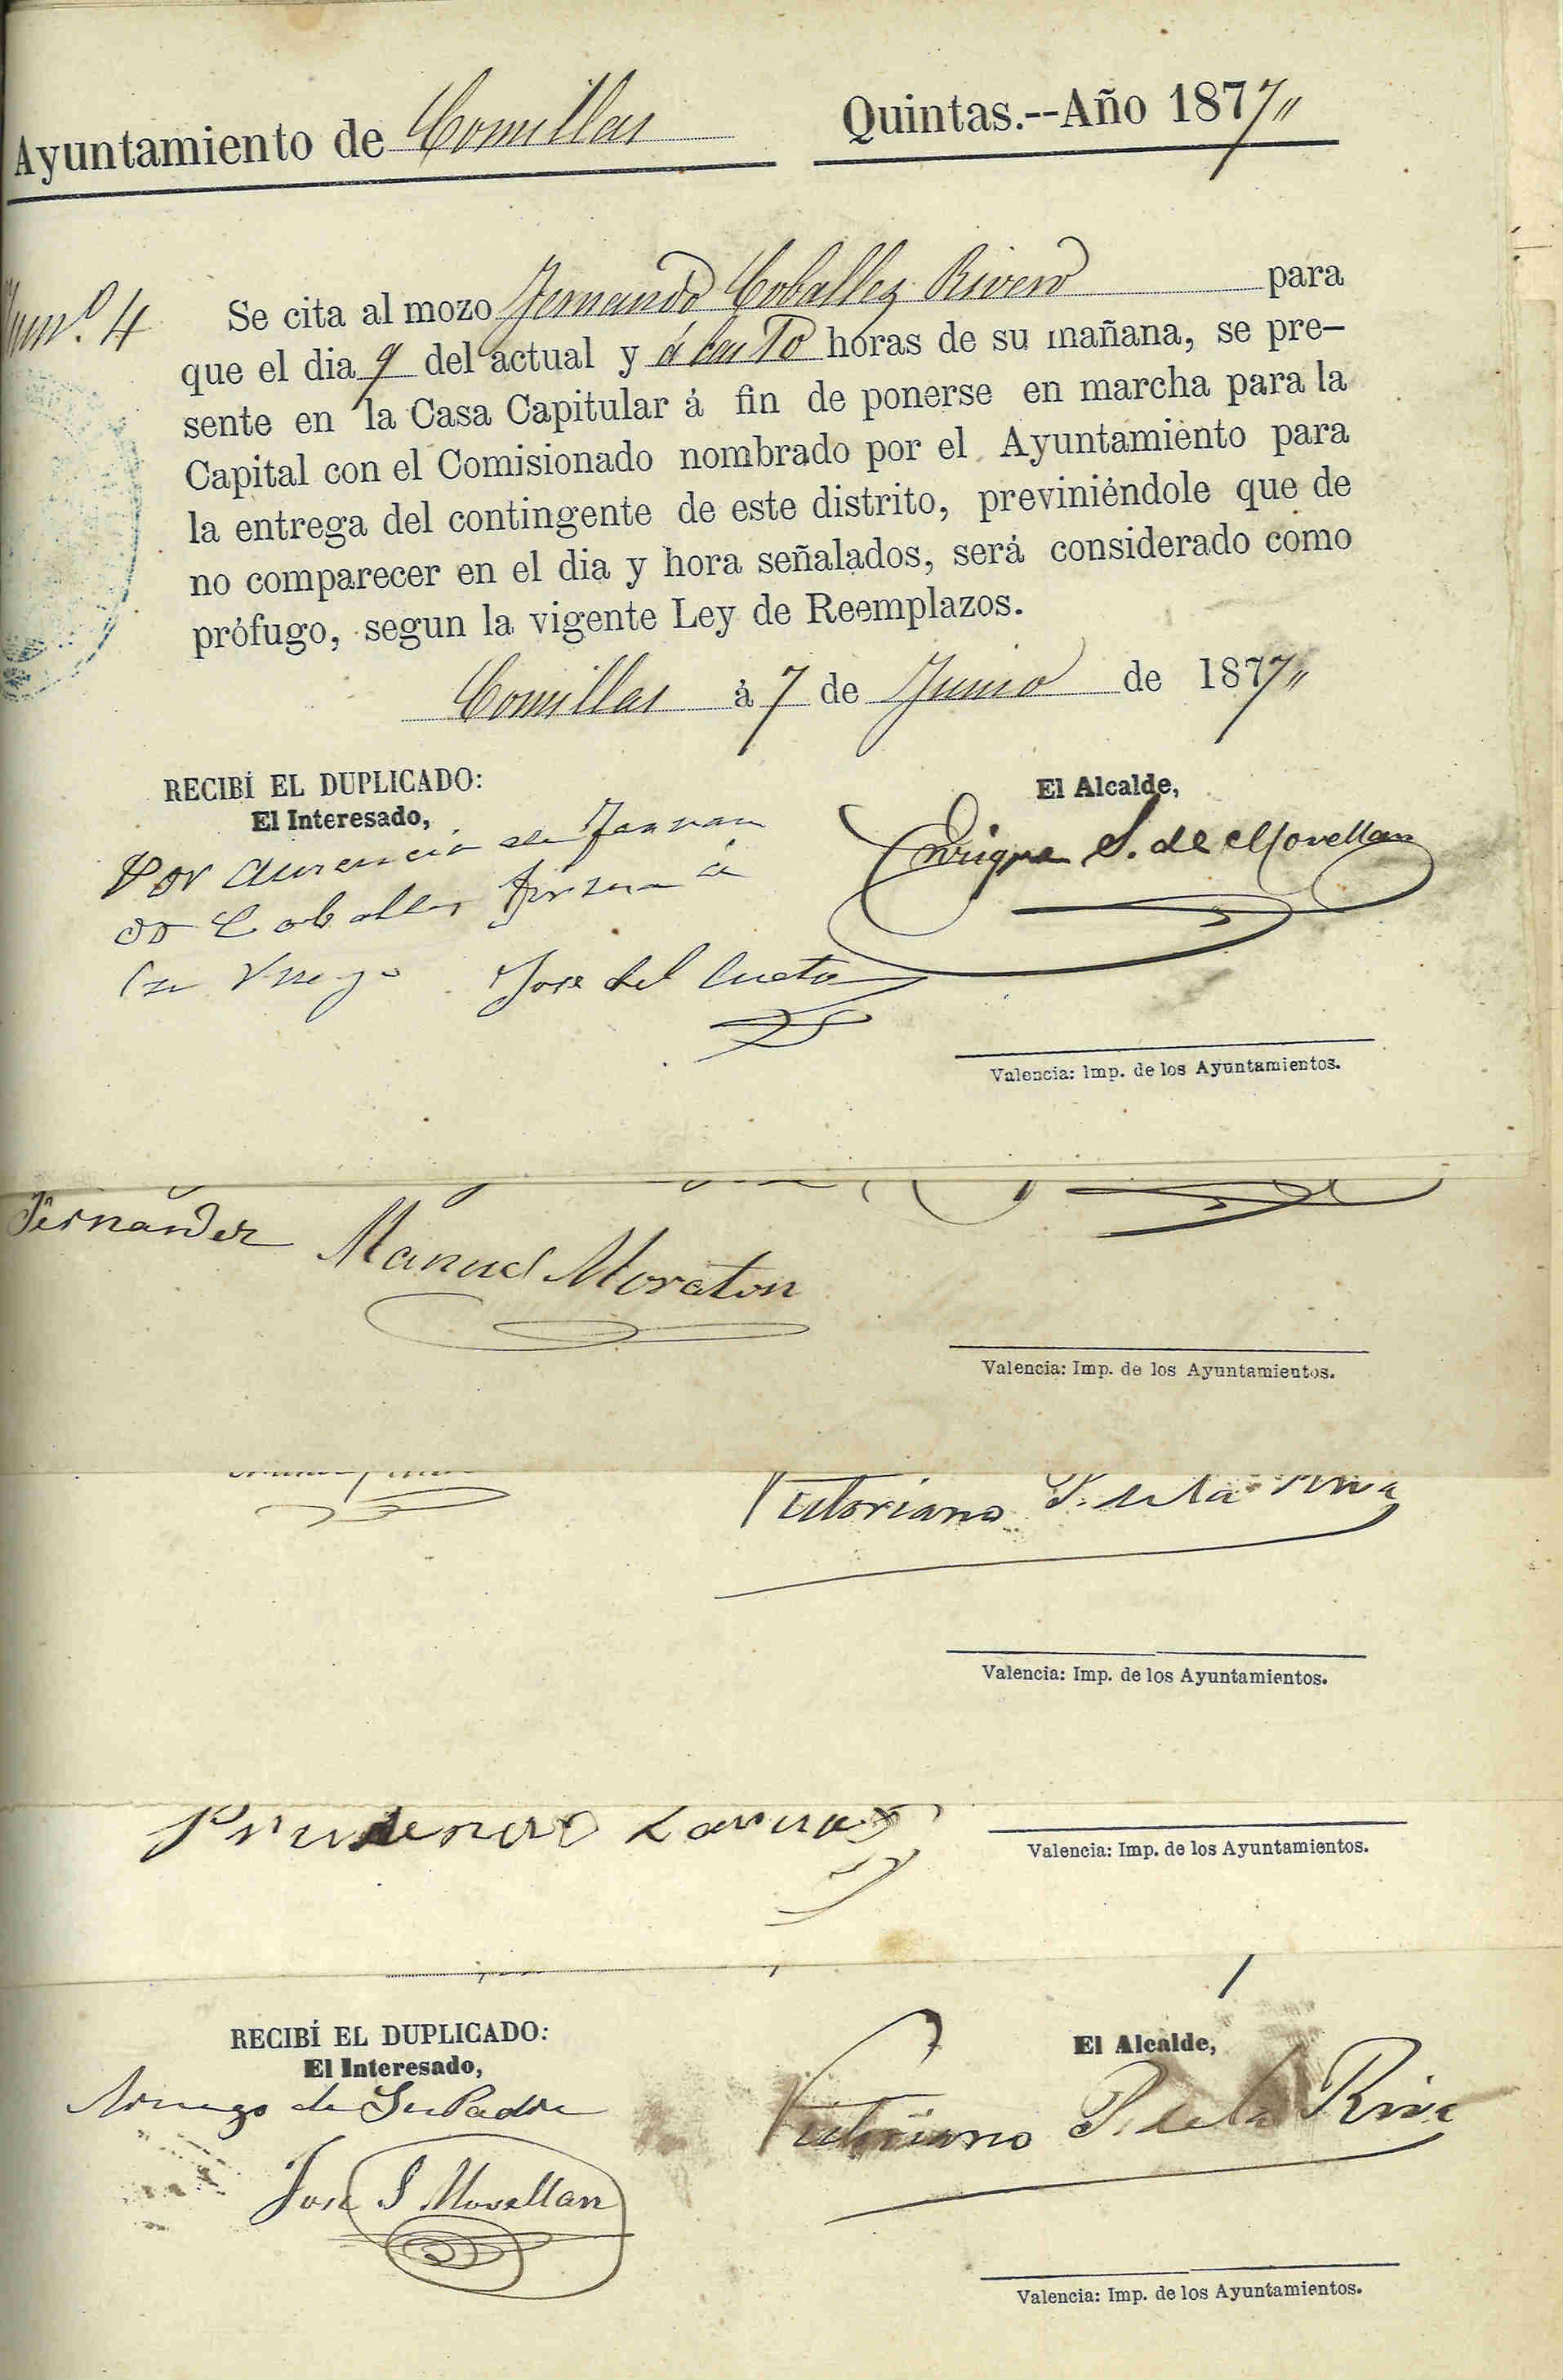 Ayuntamiento de Comillas
Quintas.--Año 1877"
Num.º 4
Se cita al mozo Fernando Coballes Rivero para
que el dia 9 del actual y á las 10 horas de su mañana, se pre-
sente en la Casa Capitular á fin de ponerse en marcha para la
Capital con el Comisionado nombrado por el Ayuntamiento para
la entrega del contingente de este distrito, previniéndole que de
no comparecer en el dia y hora señalados, será considerado como
prófugo, segun la vigente Ley de Reemplazos.
Comillas á 7 de Junio de 1877"
RECIBÍ EL DUPLICADO:
El Interesado,
Por ausencia de Fernan
do Coballes firma á
su Ruego Jose del Cueto
El Alcalde,
Enrique S. de Movellan
Valencia: Imp. de los Ayuntamientos.
Fernandez Manuel Moraton
Valencia: Imp. de los Ayuntamientos.
Victoriano P. de la Riva
Valencia: Imp. de los Ayuntamientos.
Prudencio
Valencia: Imp. de los Ayuntamientos.
RECIBÍ EL DUPLICADO:
El Interesado,
A ruego de Su Padre
Jose S Movellan
El Alcalde,
Victoriano P. de la Riva
Valencia: Imp. de los Ayuntamientos.